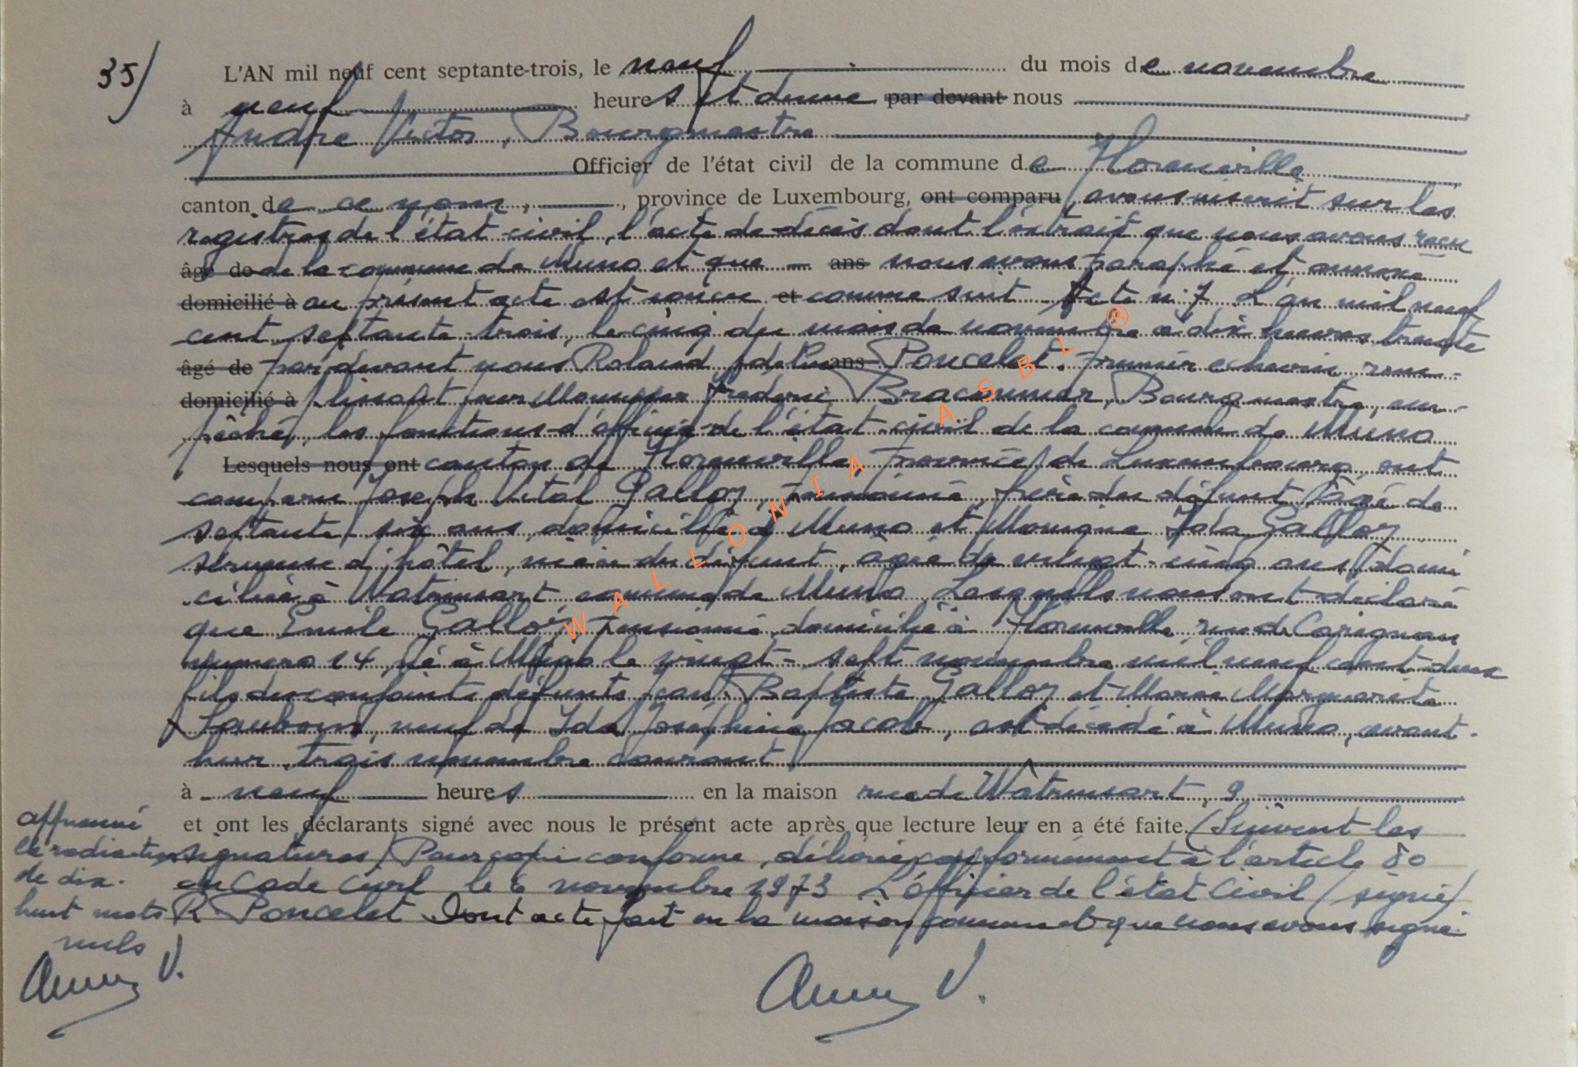 35/ L'AN mil neuf cent septante-trois, le neuf du mois de novembre
à neuf heures et demie par devant nous
André Victor, Bourgmestre
Officier de l'état civil de la commune de Florenville
canton de ce nom, province de Luxembourg, ont comparu, avons inscrit sur les
registres de l'état civil, l'acte de décès dont l'extrait que nous avons reçu
âgé de de la commune de Muno et que ans nous avons paraphé et annexé
domicilié à au présent acte est conçu et comme suit. Acte n° 7 L'an mil neuf
cent septante trois, le cinq du mois de novembre à dix heures trente
âgé de par devant nous Roland ans Poncelet. Premier échevin rem-
domicilié à plissant pour Monsieur Frédéric Braconnier, Bourgmestre, em-
pêché, les fonctions d'officier de l'état civil de la commune de Muno
Lesquels nous ont canton de Florenville, Province de Luxembourg, ont
comparu Joseph Vital Galloy, Pensionné, frère du défunt, âgé de
septante six ans, domicilié à Muno et Monique Ida Galloy,
serveuse d'hôtel, nièce du défunt, âgée de vingt-cinq ans, domi
ciliée à Watrinsart commune de Muno Lesquels nous ont déclaré
que Emile Galloy, Pensionné, domicilié à Florenville rue de Carignan
numéro 14, né à Muno le vingt-sept novembre mil neuf cent deux
fils des conjoints défunts Jean-Baptiste Galloy et Marie Marguerite
veuf de Ida Joséphine Jacob, est décédé à Muno, avant-
hier, trois novembre courant
à neuf heures en la maison rue de Watrinsart, 9
et ont les déclarants signé avec nous le présent acte après que lecture leur en a été faite. (Suivent les
signatures) Pour copie conforme, délivrée conformément à l'article 80
du Code Civil le 6 novembre 1973 L'officier de l'état Civil (signé)
R Poncelet Dont acte fait en la maison commune et que nous avons signé.
approuvé
la radiation
de dix-
huit mots
nuls
V.
V.
WALLONIA ASBL ®